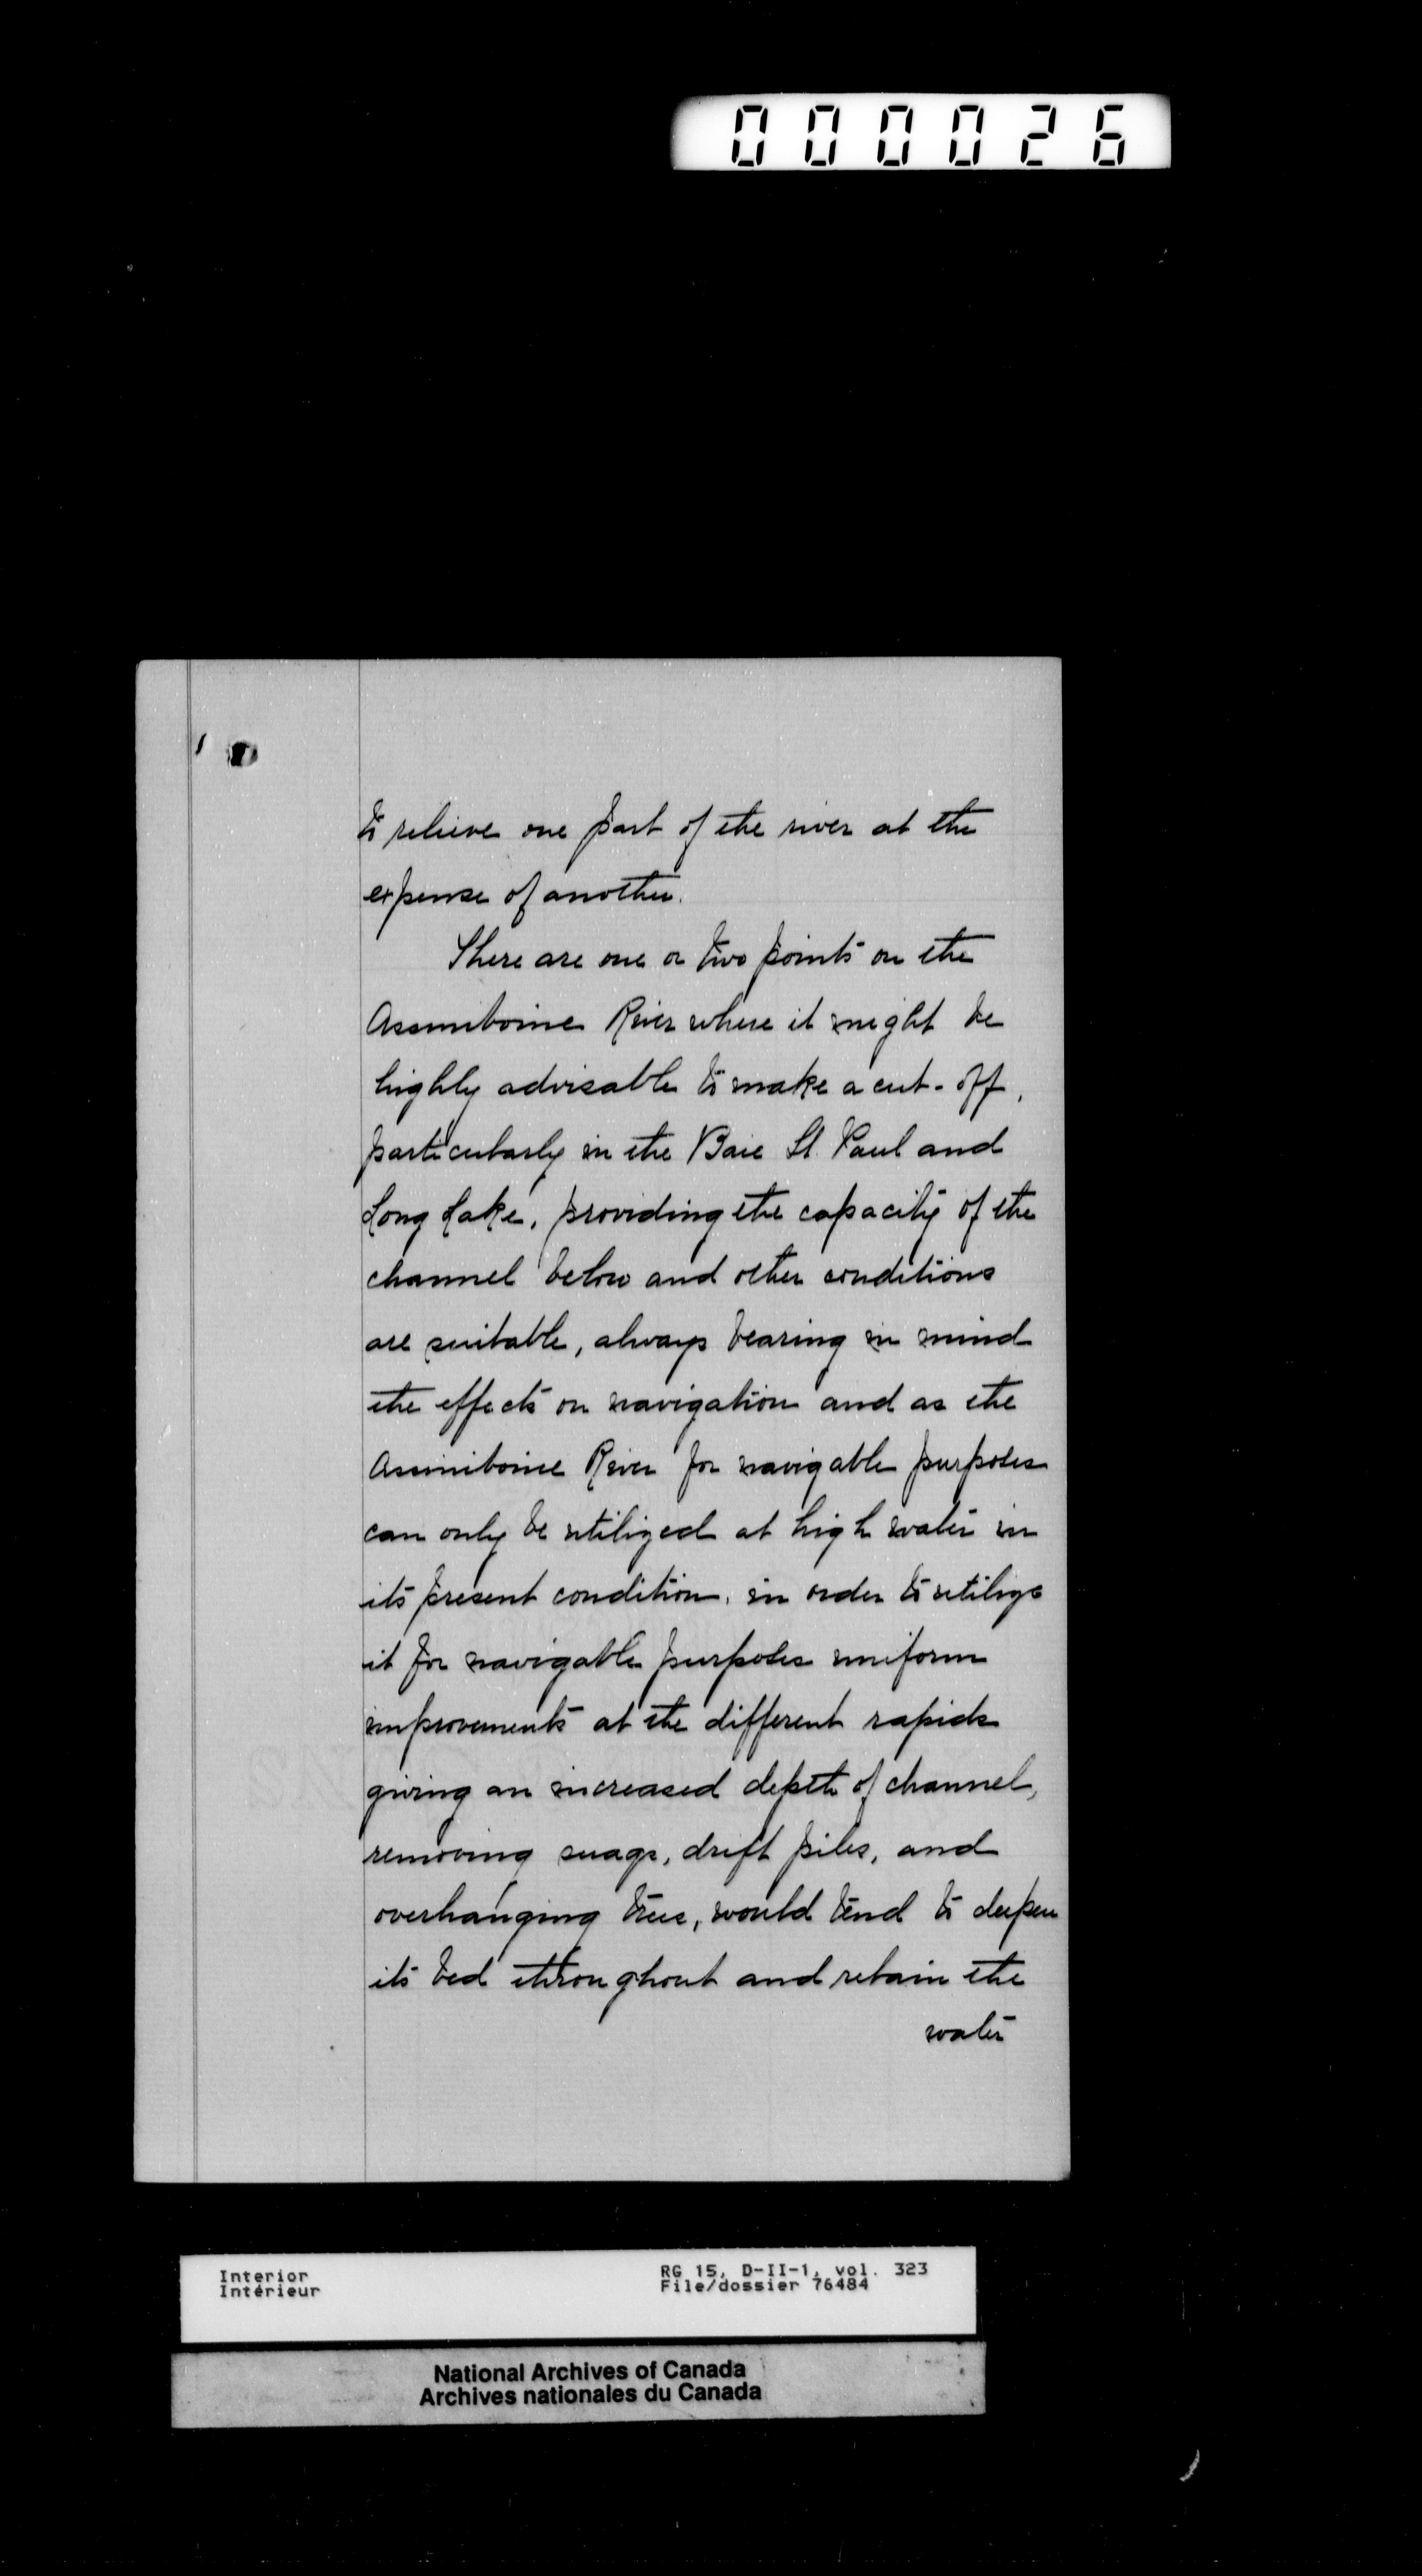 000026
to relieve one part of the river at the
expense of another.
There are one or two points on the
Assiniboine River where it might be
highly advisable to make a cut-off,
particularly in the Baie St. Paul and
Long Lake, providing the capacity of the
channel below and other conditions
are suitable, always bearing in mind
the effects on navigation and as the
Assiniboine River for navigable purposes
can only be utilized at high water in
its present condition, in order to utilize
it for navigable purposes uniform
improvements at the different rapids
giving an increased depth of channel,
removing snags, drift piles, and
overhanging trees, would tend to deepen
its bed throughout and retain the
water
Interior
Intérieur
RG 15, D-II-1, vol. 323
File/dossier 76484
National Archives of Canada
Archives nationales du Canada